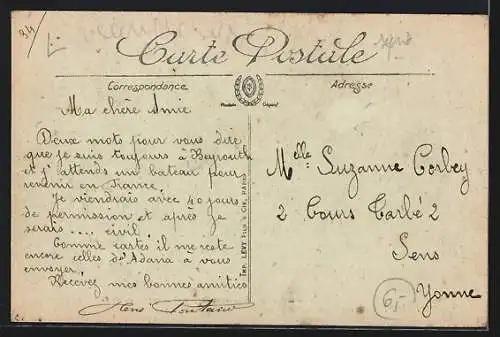 3/4
Carte Postale
Correspondance
Adresse
Ma chère Amie
Deux mots pour vous dire
que je suis toujours à Beyrouth
et j'attends un bateau pour
revenir en France.
Je viendrais avec 40 jours
de permission et après je
serais .... civil.
Comme cartes il me reste
encore celles d'Adana à vous
envoyer.
Recevez mes bonnes amitiés
Melle Suzanne Corbey
2 Cours Tarbé 2
Sens
Yonne
6,-
Imp. LEVY Fils & Cie, PARIS